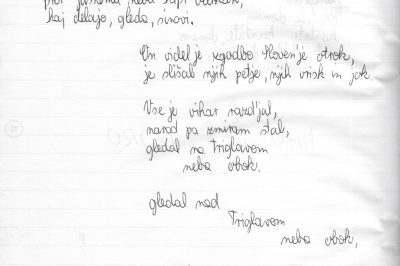 kaj delajo, gleda, sinovi.
On videl je zgodbo Sloven'je otrok,
je slišal njih petje, njih vrisk in jok.
Vse je vihar razd'jal,
narod pa zmiram stal,
gledal na Triglavom
neba obok.
gledal nad
Triglavom
neba obok,